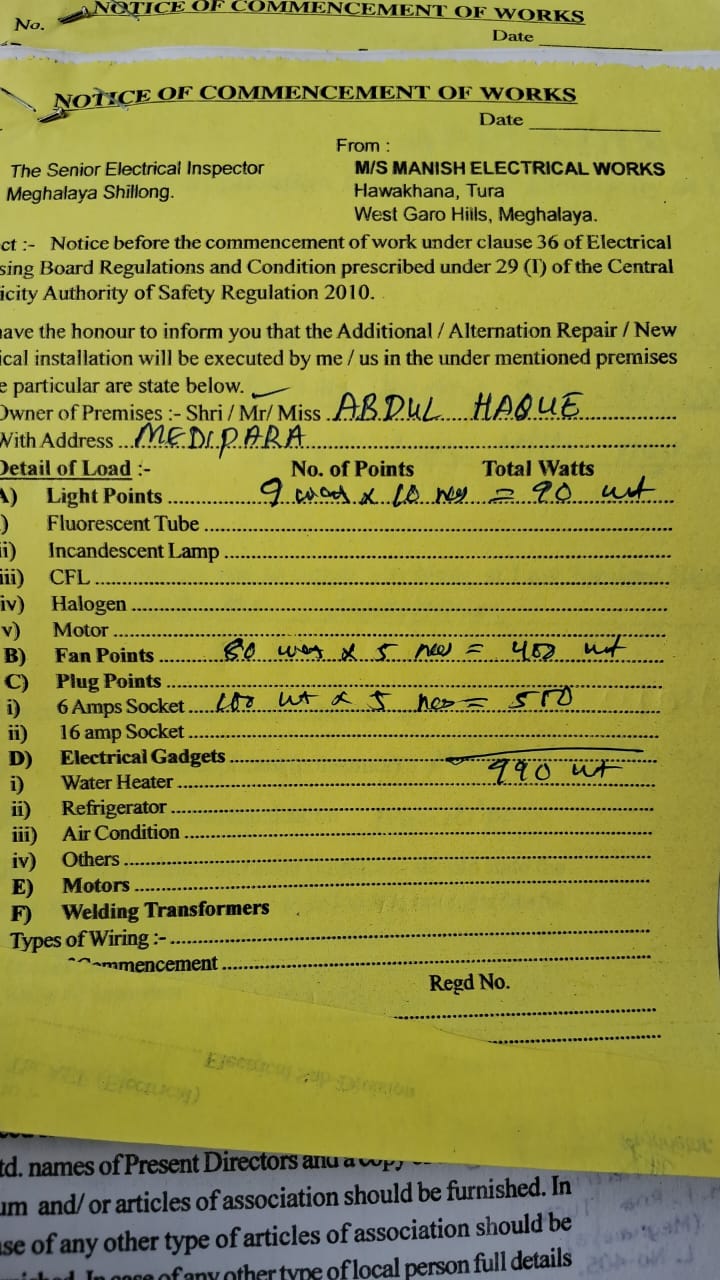 NOTICE OF COMMENCEMENT OF WORKS
No.
Date
NOTICE OF COMMENCEMENT OF WORKS
Date
From :
The Senior Electrical Inspector
M/S MANISH ELECTRICAL WORKS
Meghalaya Shillong.
Hawakhana, Tura
West Garo Hills, Meghalaya.
ct :- Notice before the commencement of work under clause 36 of Electrical
sing Board Regulations and Condition prescribed under 29 (I) of the Central
icity Authority of Safety Regulation 2010.
have the honour to inform you that the Additional / Alternation Repair / New
ical installation will be executed by me / us in the under mentioned premises
e particular are state below.
Owner of Premises :- Shri / Mr/ Miss ABDUL HAQUE
With Address MEDIPARA
Detail of Load :- No. of Points Total Watts
A) Light Points 9 x 10 = 90 wt
) Fluorescent Tube
ii) Incandescent Lamp
iii) CFL
iv) Halogen
v) Motor
B) Fan Points 80 x 5 = 400 wt
C) Plug Points
i) 6 Amps Socket 100 wt x 5 = 500
ii) 16 amp Socket
D) Electrical Gadgets
990 wt
i) Water Heater
ii) Refrigerator
iii) Air Condition
iv) Others
E) Motors
F) Welding Transformers
Types of Wiring :-
mmencement
Regd No.
Electrical Sub-Division
(Electrical)
td. names of Present Directors and a copy
um and/ or articles of association should be furnished. In
se of any other type of articles of association should be
In case of any other type of local person full details